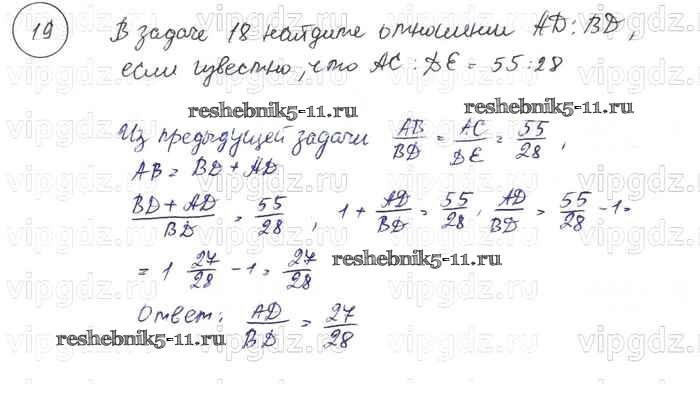 19 В задаче 18 найдите отношении AD : BD,
если известно, что AC : DE = 55 : 28
reshebnik5-11.ru
Из предыдущей задачи AB/BD = AC/DE = 55/28,
AB = BD + AD
(BD + AD)/BD = 55/28, 1 + AD/BD = 55/28, AD/BD = 55/28 - 1 =
= 1 27/28 - 1 = 27/28
reshebnik5-11.ru
Ответ: AD/BD = 27/28
reshebnik5-11.ru
vipgdz.ru